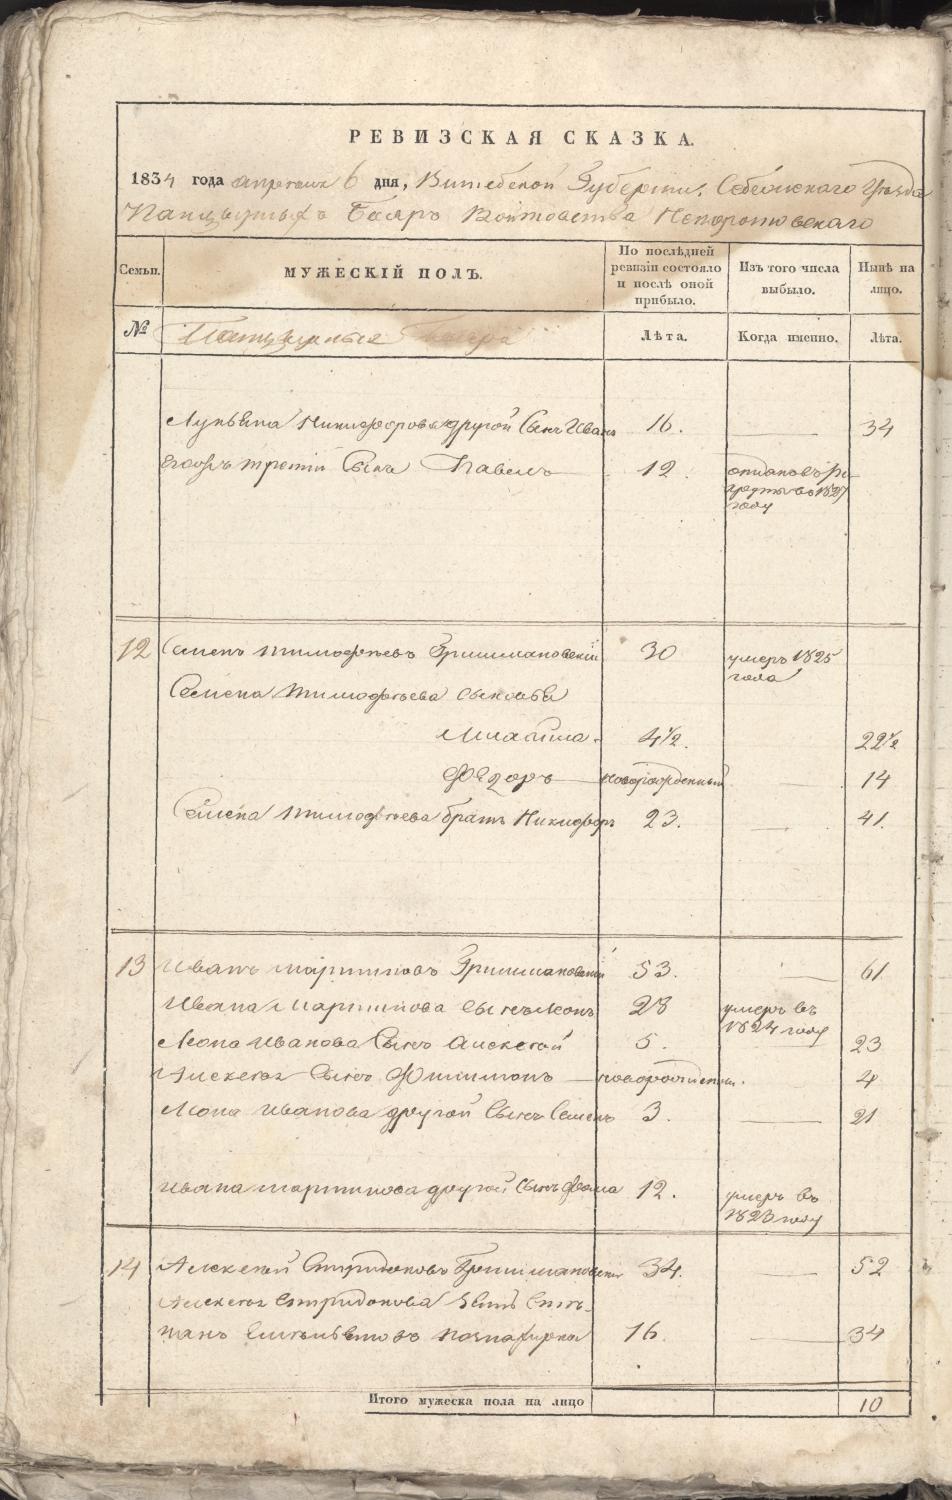 РЕВИЗСКАЯ СКАЗКА.
1834 года апреля 6 дня, Витебской Губернии, Себежскаго Уезда
Панцырныхъ Бояръ Войтовства Непоротовскаго
Семьи.
МУЖЕСКІЙ ПОЛЪ.
По послѣдней
ревизіи состояло
и послѣ оной
прибыло.
Изъ того числа
выбыло.
Нынѣ на
лицо.
№
Панцырные Бояра
Лѣта.
Когда именно.
Лѣта.
Лукьяна Никифорова другой Сынъ Иванъ 16. 34
третій Сынъ Павелъ 12 отданъ въ ре-
круты въ 1827
году
12 Семенъ Тимофѣевъ Гришмановскій 30 умеръ 1825
года
Семена Тимофѣева сыновья
4½. 22½
Ѳедоръ новорожденный 14
Семена Тимофѣева братъ Никифоръ 23. 41.
13 Иванъ Мартиновъ Гришмановскій 53. 61
Ивана Мартинова сынъ Леонъ 28 умеръ въ
1824 году
Леона Иванова Сынъ Алексей 5. 23
Алексея Сынъ Филимонъ новорожденны. 4
Леона Иванова другой Сынъ Семенъ 3. 21
Ивана Мартинова другой Сынъ Фома 12. умеръ въ
1823 году
14 Алексей Спиридоновъ Гришмановскій 34. 52
Алексея Спиридонова Зять Сте-
панъ 16. 34
Итого мужеска пола на лицо 10